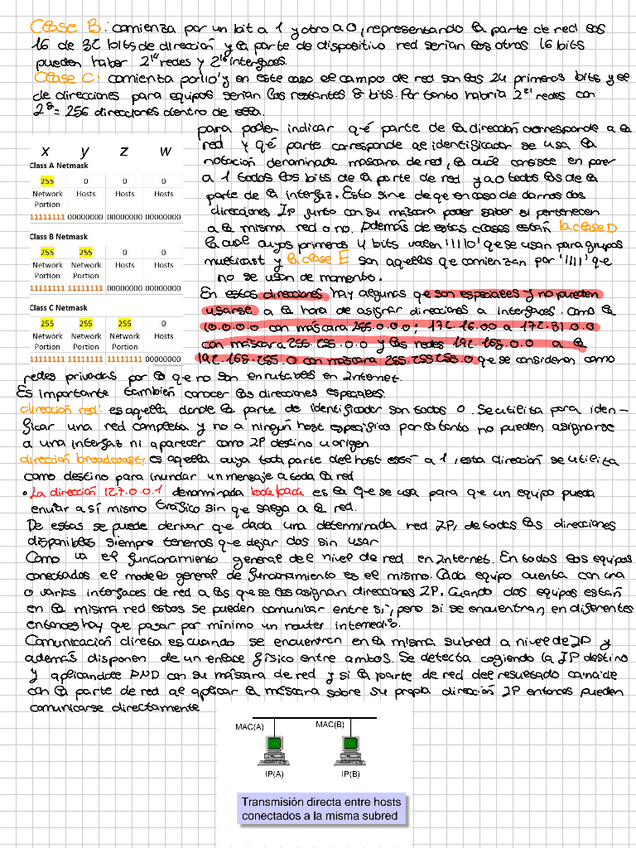 Clase B: comienza por un bit a 1 y otro a 0, representando la parte de red los
16 de 32 bits de dirección y la parte de dispositivo red serían los otros 16 bits
pueden haber 2¹⁴ redes y 2¹⁶ interfaces.
Clase C: comienza por 110 y en este caso el campo de red son los 24 primeros bits y el
de direcciones para equipos serían los restantes 8 bits. Por tanto habría 2²¹ redes con
2⁸ = 256 direcciones dentro de ella.
para poder indicar qué parte de la dirección corresponde a la
red y qué parte corresponde al identificador se usa la
notación denominada máscara de red, la cual consiste en poner
a 1 todos los bits de la parte de red y a 0 todos los de la
parte de la interfaz. Esto sirve de que en caso de darnos dos
direcciones IP junto con su máscara poder saber si pertenecen
a la misma red o no. Además de estas clases están la clase D
la cual cuyos primeros 4 bits valen '1110' que se usan para grupos
multicast y la clase E son aquellas que comienzan por '1111' que
no se usan de momento.
x y z w
Class A Netmask
255 0 0 0
Network Hosts Hosts Hosts
Portion
11111111 00000000 00000000 00000000
Class B Netmask
255 255 0 0
Network Network Hosts Hosts
Portion Portion
11111111 11111111 00000000 00000000
Class C Netmask
255 255 255 0
Network Network Network Hosts
Portion Portion Portion
11111111 11111111 11111111 00000000
En estas direcciones hay algunas que son especiales y no pueden
usarse a la hora de asignar direcciones a interfaces. como la
10.0.0.0 con máscara 255.0.0.0; 172.16.00 a 172.31.0.0
con máscara 255.255.0.0 y las redes 192.168.0.0 a la
192.168.255.0 con máscara 255.255.255.0 que se consideran como
redes privadas por lo que no son enrutables en Internet.
Es importante también conocer las direcciones especiales.
dirección red: es aquella donde la parte de identificador son todos 0. Se utiliza para iden-
ficar una red completa y no a ningún host específico por lo tanto no pueden asignarse
a una interfaz ni aparecer como IP destino u origen
dirección broadcast: es aquella cuya toda parte del host está a 1, esta dirección se utiliza
como destino para inundar un mensaje a toda la red
• La dirección 127.0.0.1 denominada loopback es la que se usa para que un equipo pueda
enviar a sí mismo tráfico sin que salga a la red.
De estas se puede derivar que dada una determinada red IP, de todas las direcciones
disponibles siempre tenemos que dejar dos sin usar
Como va el funcionamiento general del nivel de red en Internet. En todos los equipos
conectados el modelo general de funcionamiento es el mismo. Cada equipo cuenta con una
o varias interfaces de red a las que se les asignan direcciones IP. Cuando dos equipos están
en la misma red estos se pueden comunicar entre sí, pero si se encuentran en diferentes
entonces hay que pasar por mínimo un router intermedio.
Comunicación directa es cuando se encuentran en la misma subred a nivel de IP y
además disponen de un enlace físico entre ambos. Se detecta cogiendo la IP destino
y aplicándole AND con su máscara de red y si la parte de red del resultado coincide
con la parte de red al aplicar la máscara sobre su propia dirección IP entonces pueden
comunicarse directamente
MAC(A) MAC(B)
IP(A) IP(B)
Transmisión directa entre hosts
conectados a la misma subred